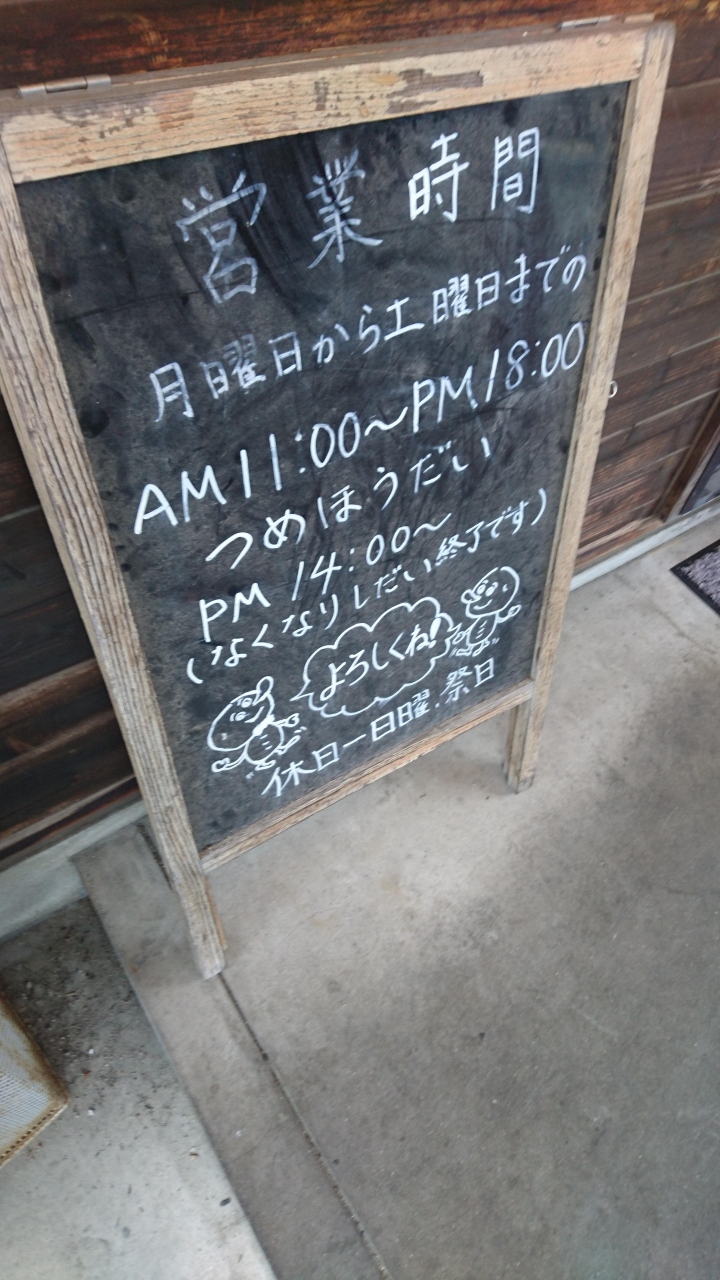 営業時間
月曜日から土曜日までの
AM11:00～PM18:00
つめほうだい
PM 14:00～
(なくなりしだい終了です)
よろしくね!
休日ー日曜.祭日